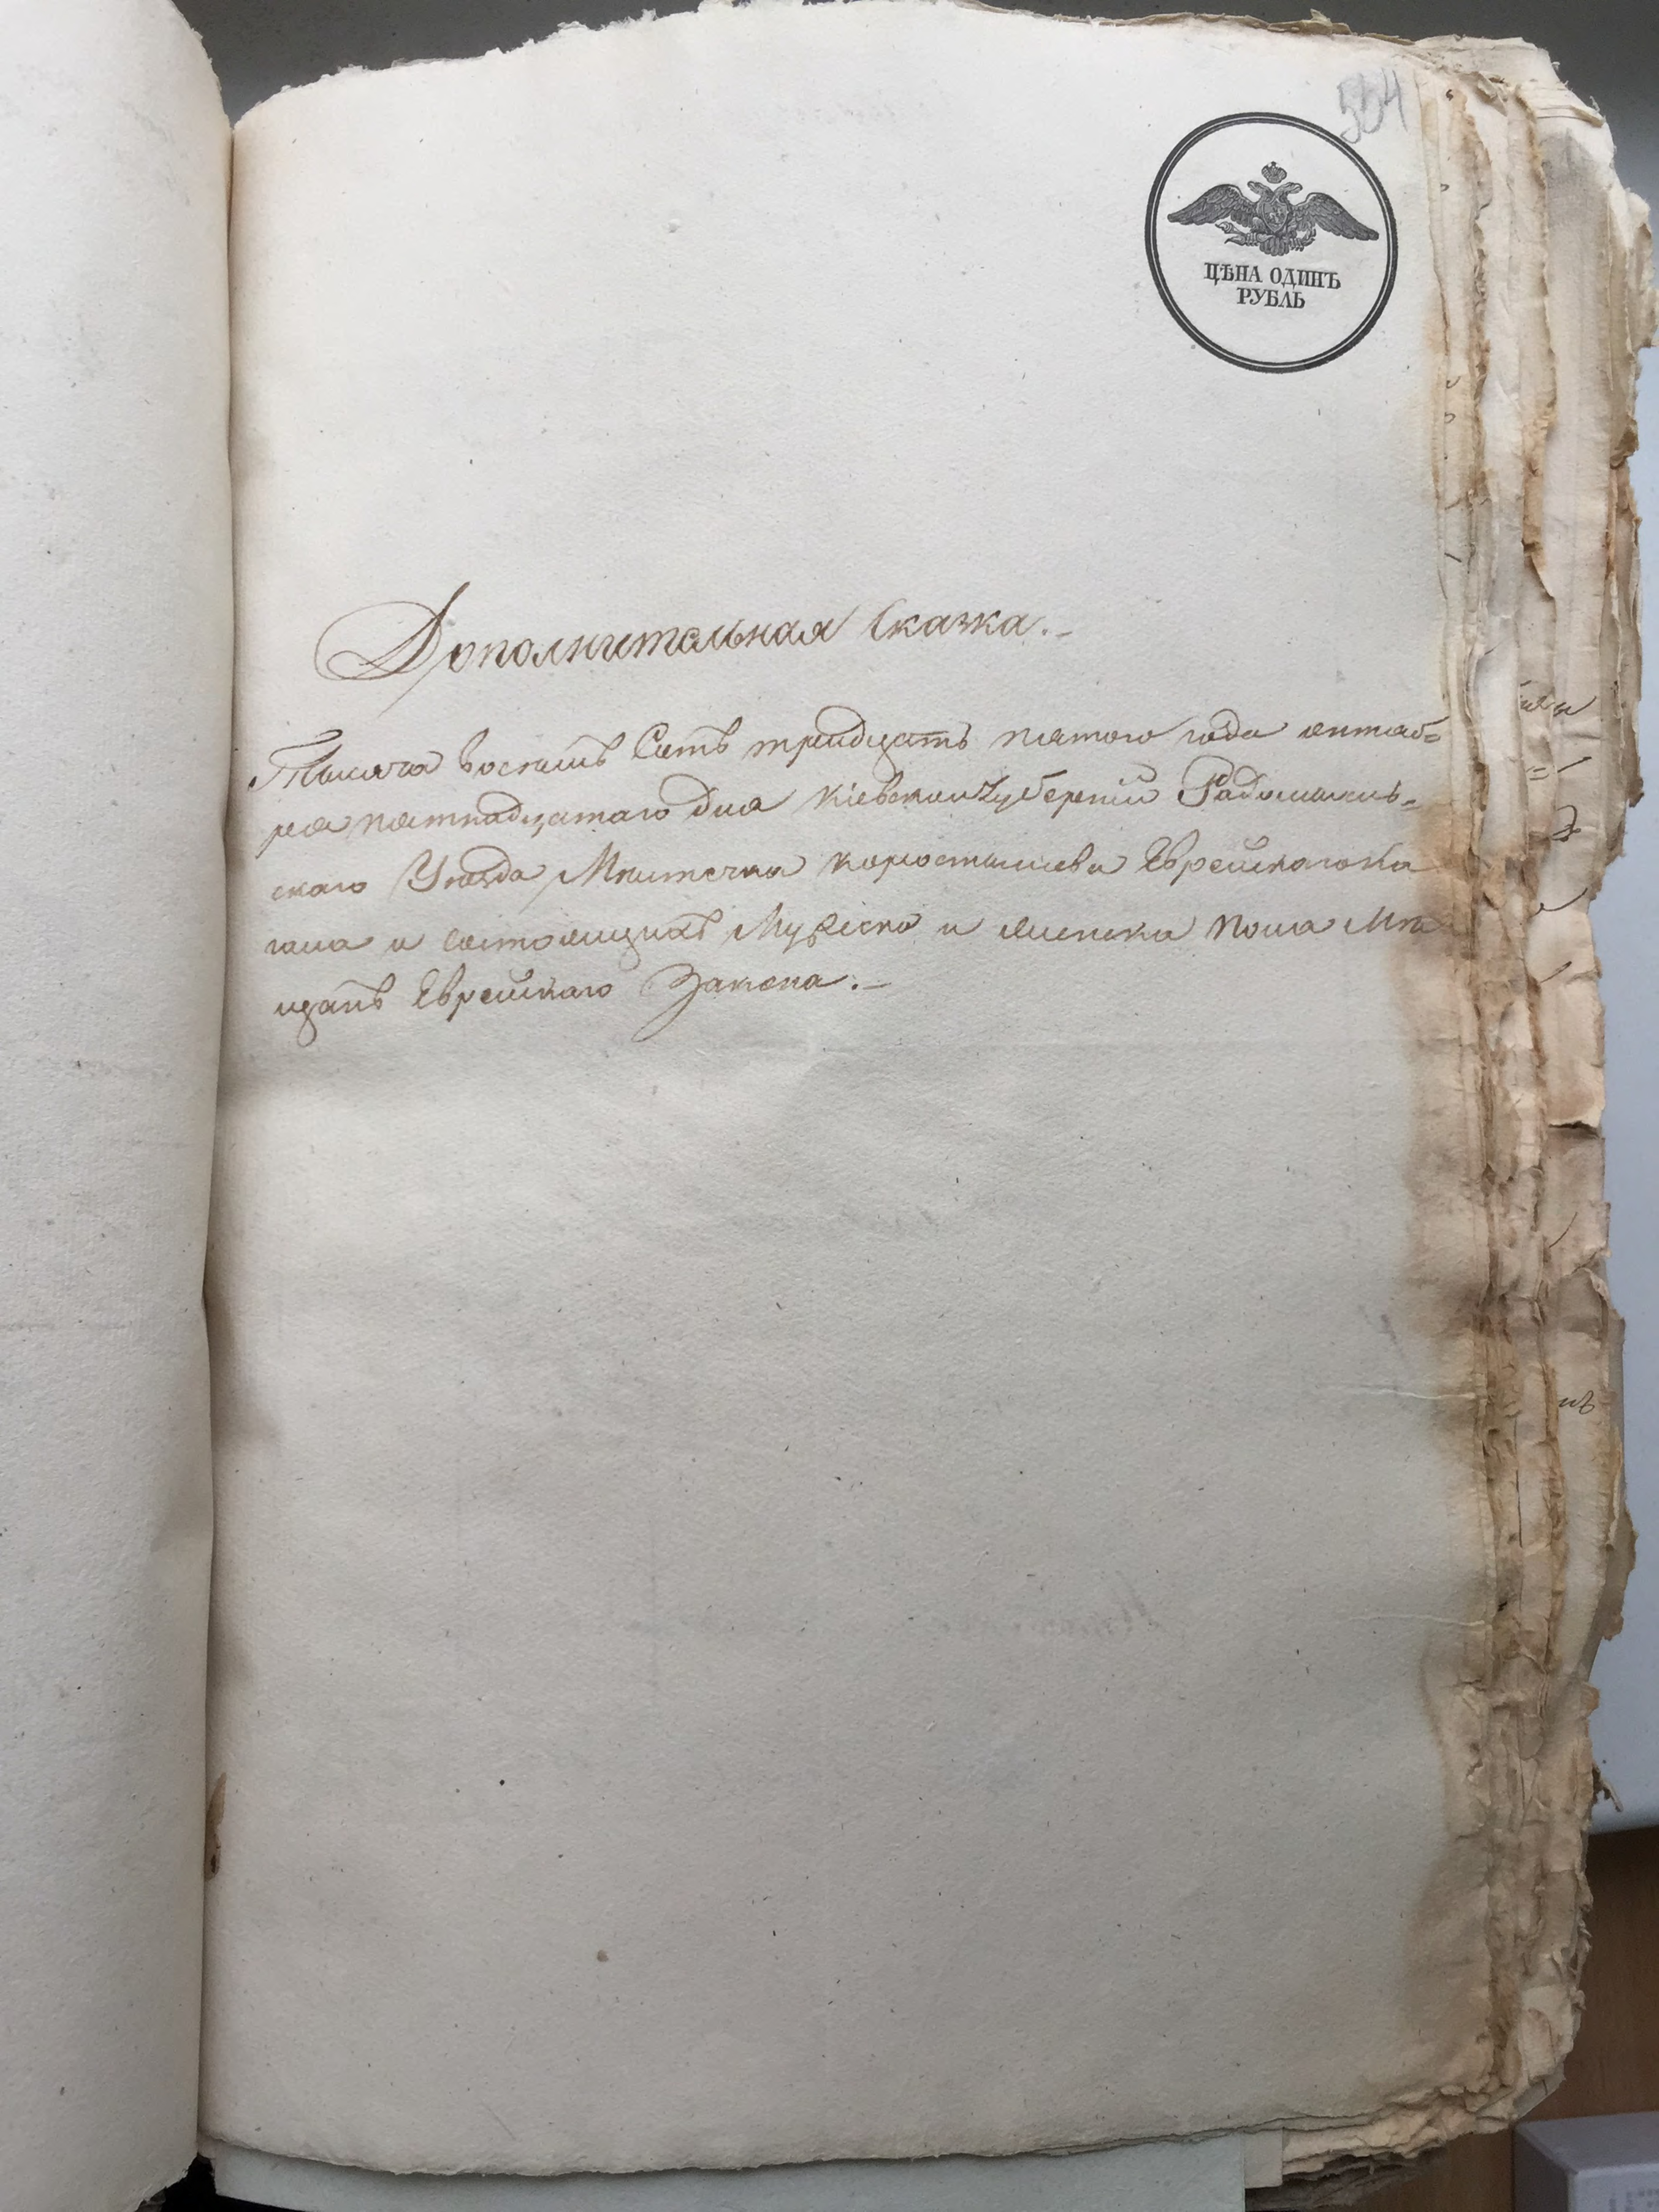 554
ЦѢНА ОДИНЪ
РУБЛЬ
Дополнительная Сказка.-
Тысяча восемь Сотъ тридцать пятого года октяб=
ря пятнадцатаго дня Кіевской Губерніи Радомысль=
скаго Уѣзда Мѣстечка Коростышева Еврейскагока
гала о состоящихъ Мужеска и женска пола Мѣ
щанъ Еврейскаго Закона.-